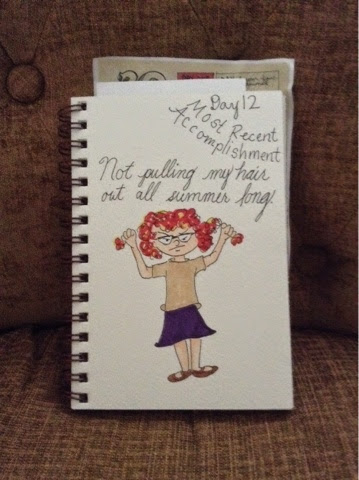 Day 12
Most Recent
Accomplishment
Not pulling my hair
out all summer long!